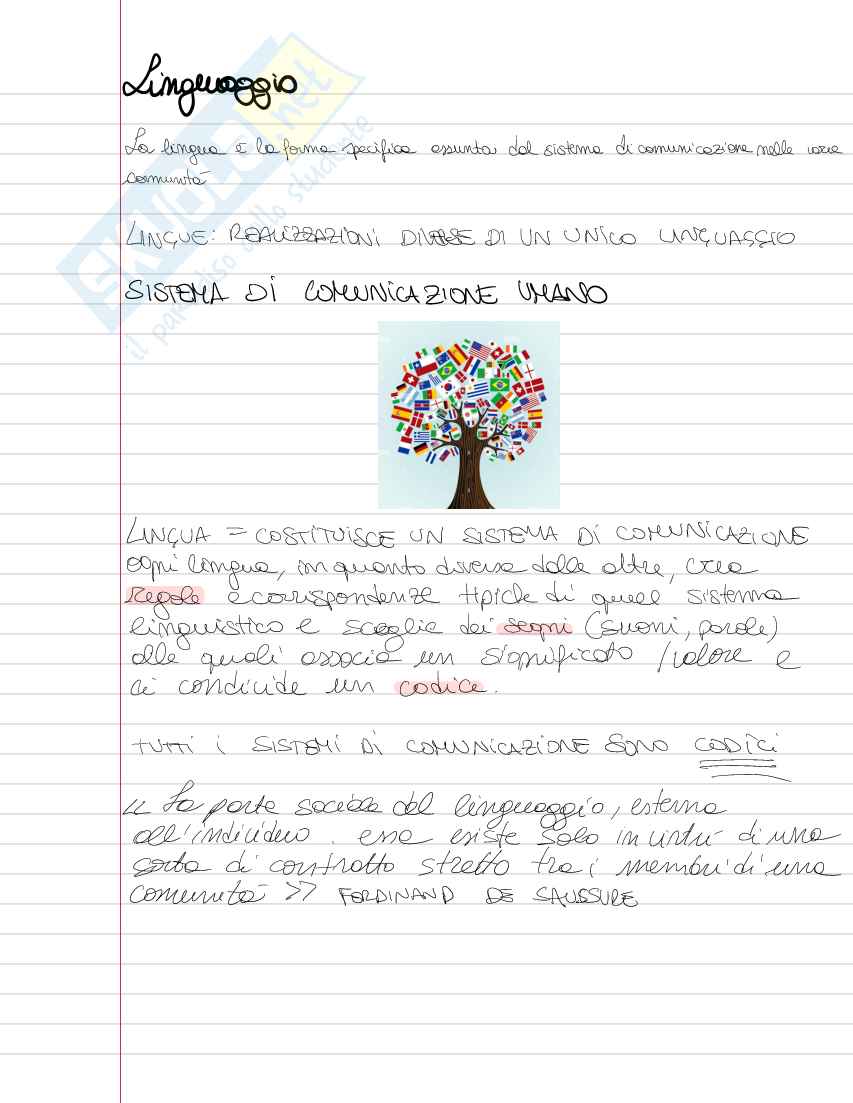 Linguaggio
La lingua è la forma specifica assunta dal sistema di comunicazione nelle varie
comunità
LINGUE: REALIZZAZIONI DIVERSE DI UN UNICO LINGUAGGIO
SISTEMA DI COMUNICAZIONE UMANO
LINGUA = COSTITUISCE UN SISTEMA DI COMUNICAZIONE
ogni lingua, in quanto diversa dalle altre, crea
regole e corrispondenze tipiche di quel sistema
linguistico e sceglie dei segni (suoni, parole)
alle quali associa un significato / valore e
ci condivide un codice.
TUTTI I SISTEMI DI COMUNICAZIONE SONO CODICI
<< La parte sociale del linguaggio, esterna
all'individuo. essa esiste solo in virtù di una
sorta di contratto stretto tra i membri di una
comunità >> FERDINAND DE SAUSSURE
SKUOLA.net
il paradiso dello studente